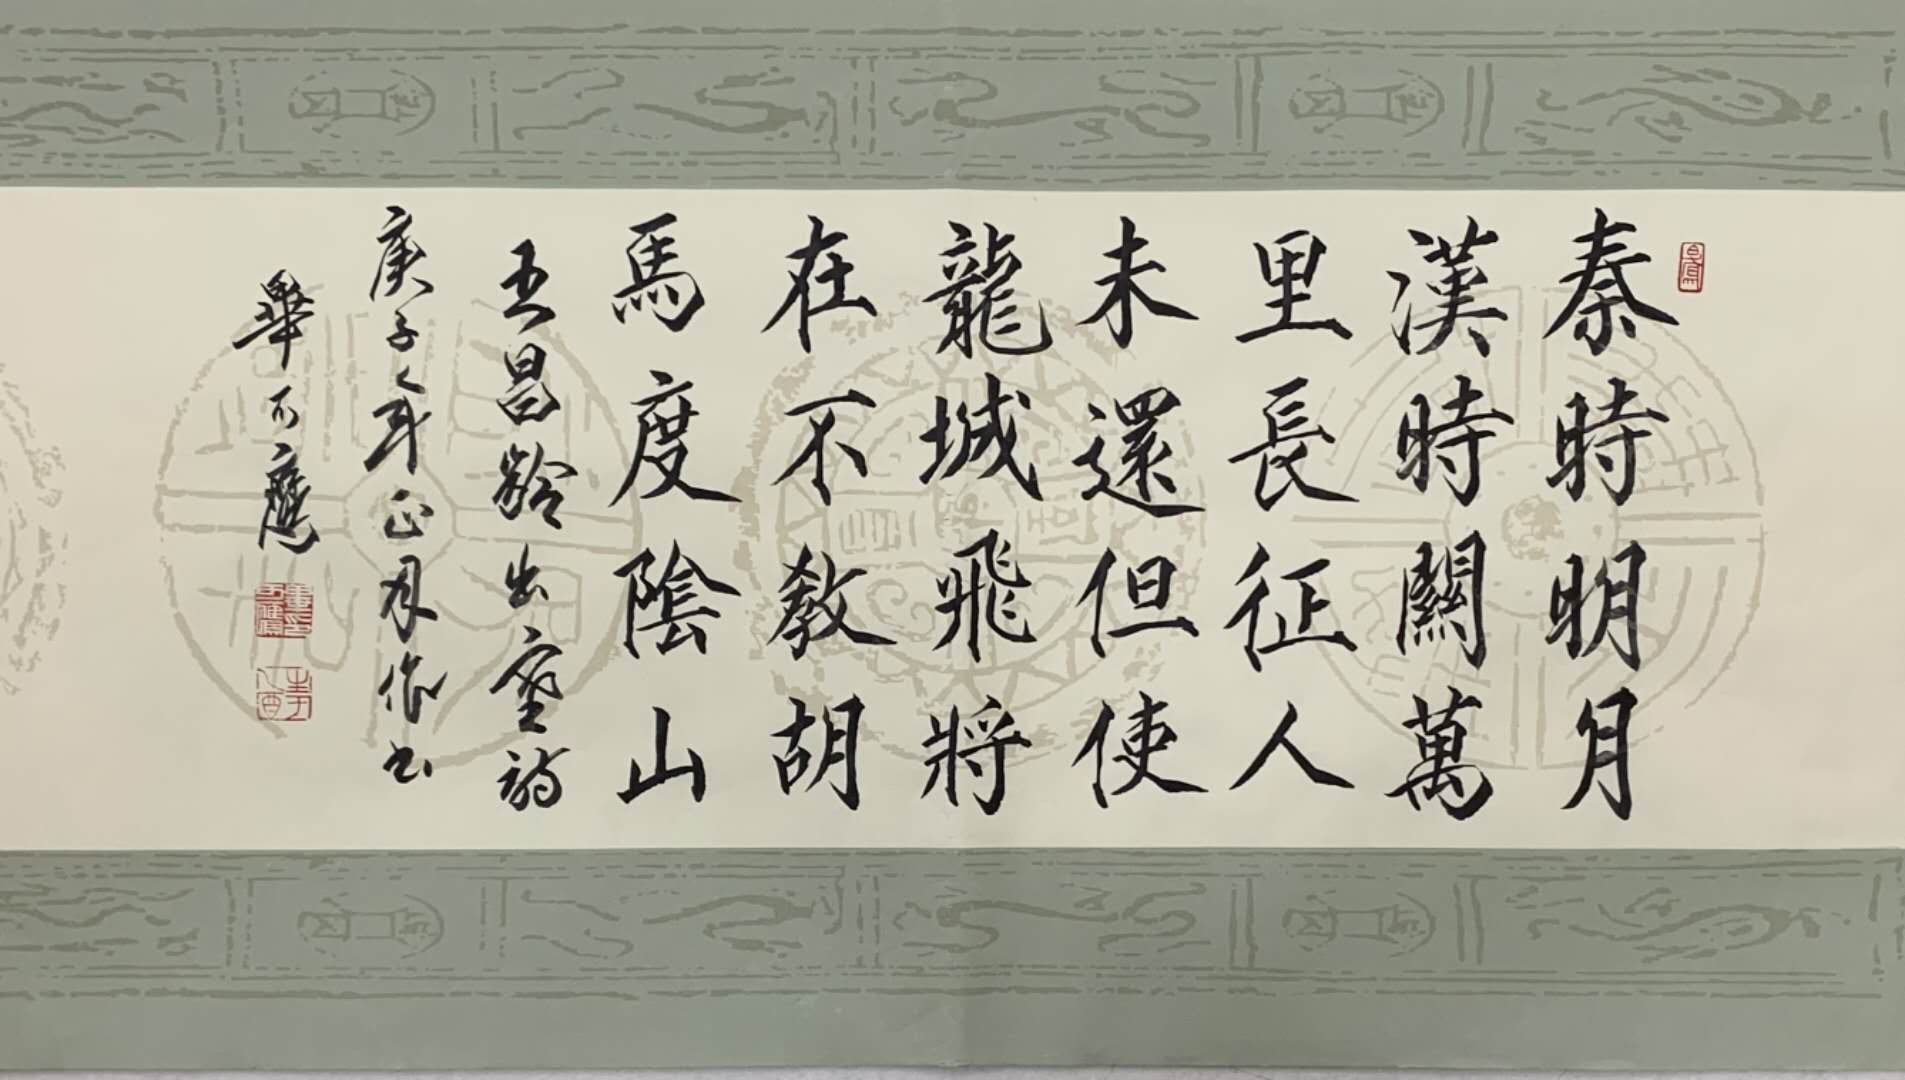 秦時明月
漢時關萬
里長征人
未還但使
龍城飛將
在不教胡
馬度陰山
王昌齡出塞詩
庚子年正月作书